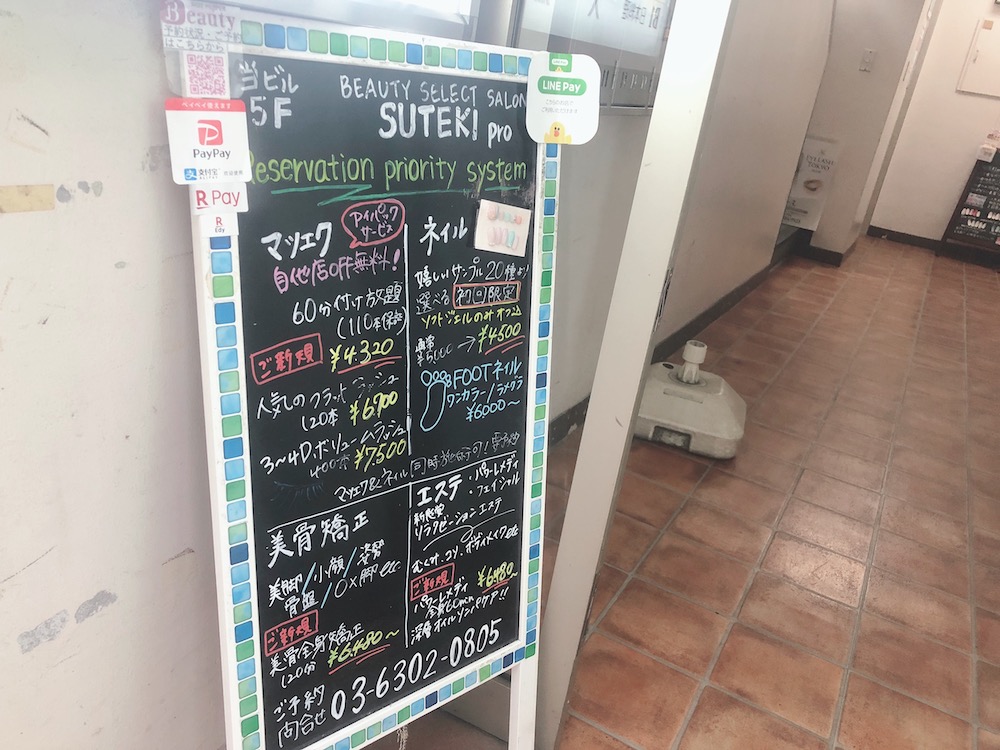 Beauty
予約状況・ご予約
はこちらから
ペイペイ使えます
PayPay
支付宝
R Pay
R
Edy
LINE Pay
当ビル
5F
BEAUTY SELECT SALON
SUTEKI pro
Reservation priority system
マツエク
アイパック
サービス
自他店OFF無料!
60分付け放題
(110本保証)
ご新規 ¥4.320
人気のフラットラッシュ
120本 ¥6.700
3〜4Dボリュームラッシュ
400本 ¥7.500
ネイル
嬉しいサンプル20種より!
選べる 初回限定
ソフトジェルのみオフ込
通常
¥5000 → ¥4500
FOOTネイル
ワンカラー/ラメグラ
¥6000〜
マツエク&ネイル同時施術可!要予約
美骨矯正
美脚/小顔/姿勢
骨盤/O×脚 etc.
ご新規
美骨全身矯正
120分 ¥6.480〜
エステ
・パワーレメディ
・フェイシャル
リラクゼーションエステ
むくみ、コリ、ボディメイク etc
ご新規 ¥6.480〜
パワーレメディ
全身60min
深層オイルリンパケア!!
ご予約
問合せ 03-6302-0805
EYELASH
TOKYO